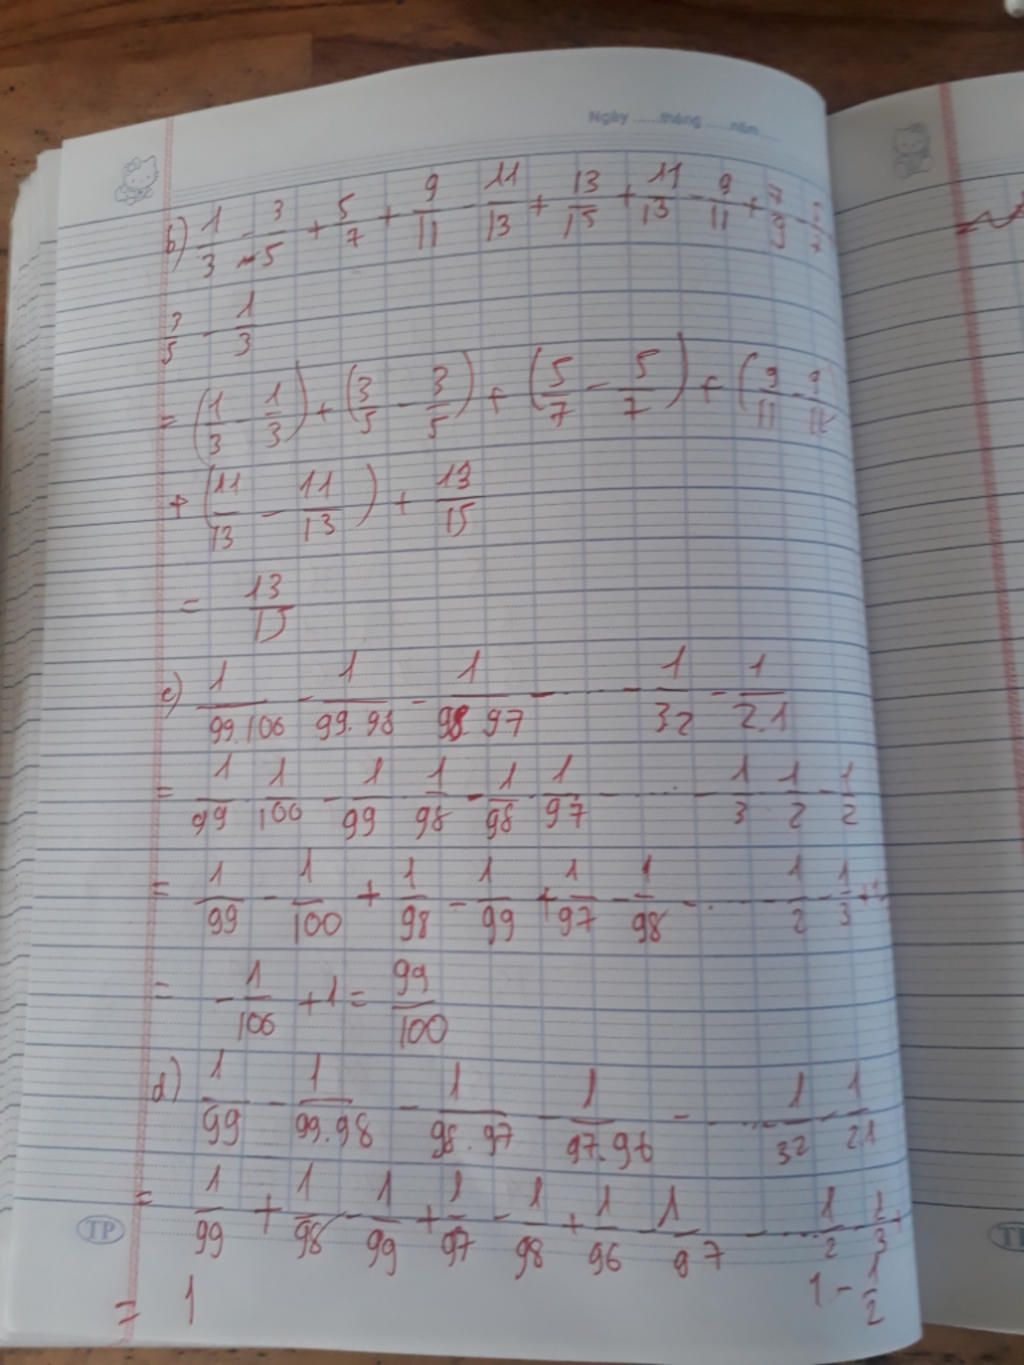 Ngày ......tháng ......năm ......
b) 1/3 - 3/5 + 5/7 + 9/11 - 11/13 + 13/15 + 11/13 - 9/11 + 7/9 - 5/7
3/5 - 1/3
= (1/3 - 1/3) + (3/5 - 3/5) + (5/7 - 5/7) + (9/11 - 9/11)
+ (11/13 - 11/13) + 13/15
= 13/15
c) 1/99.100 - 1/99.98 - 1/98.97 - ..... - 1/32 - 1/2.1
= 1/99 1/100 - 1/99 1/98 - 1/98 1/97 - ..... - 1/3 1/2 - 1/2
= 1/99 - 1/100 + 1/98 - 1/99 + 1/97 - 1/98 - ..... - 1/2 - 1/3 +
= -1/100 + 1 = 99/100
d) 1/99 - 1/99.98 - 1/98.97 - 1/97.96 - ..... 1/32 - 1/21
= 1/99 + 1/98 - 1/99 + 1/97 - 1/98 + 1/96 - 1/97 - ..... 1/2 - 1/3 +
1 - 1/2
= 1
TP